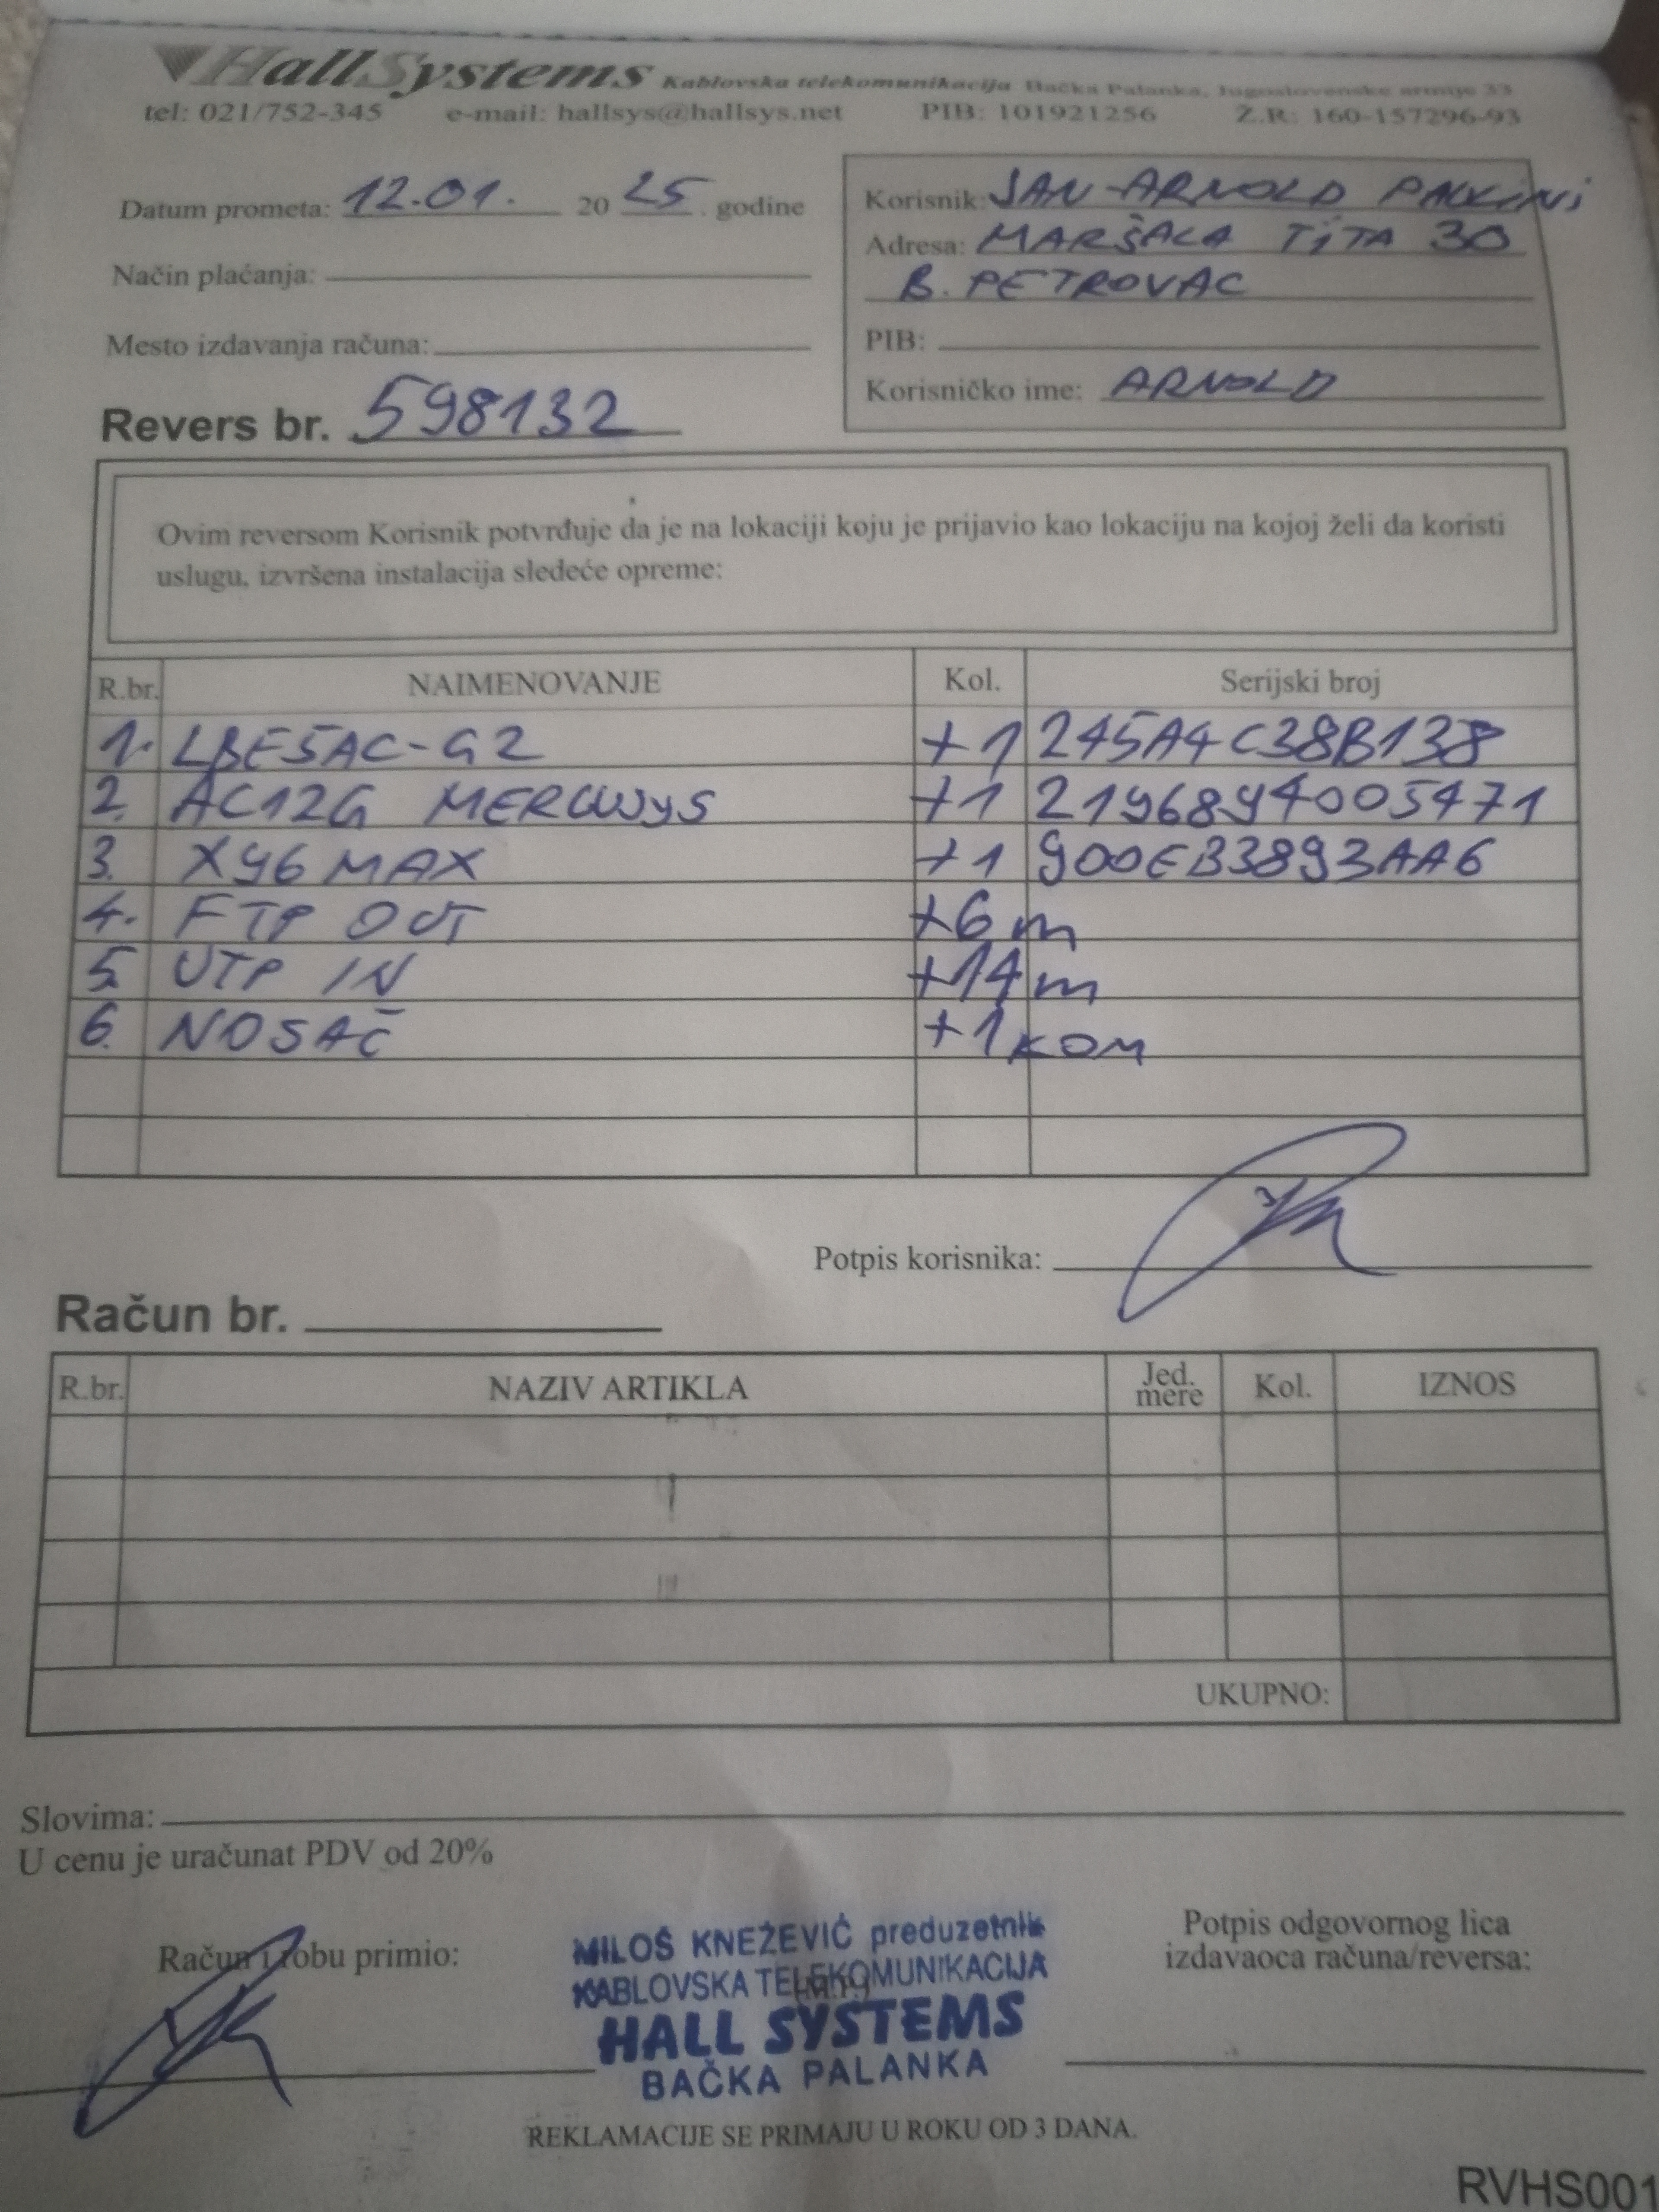 HallSystems Kablovska telekomunikacija Bačka Palanka, Jugoslovenske armije 33
tel: 021/752-345 e-mail: hallsys@hallsys.net PIB: 101921256 Ž.R: 160-157296-93
Datum prometa: 12.01. 2025. godine
Način plaćanja:
Mesto izdavanja računa:
Revers br. 598132
Korisnik: JAN ARNOLD
Adresa: MARŠALA TITA 30
B. PETROVAC
PIB:
Korisničko ime: ARNOLD
Ovim reversom Korisnik potvrđuje da je na lokaciji koju je prijavio kao lokaciju na kojoj želi da koristi
uslugu, izvršena instalacija sledeće opreme:
R.br. NAIMENOVANJE Kol. Serijski broj
1. LBE5AC-G2 +1 245A4C38B138
2. AC12G MERCUSYS +1 2196894005471
3. X96 MAX +1 900EB3893AA6
4. FTP OUT +6 m
5. UTP IN +14 m
6. NOSAČ +1 KOM
Potpis korisnika:
Račun br.
R.br. NAZIV ARTIKLA Jed. mere Kol. IZNOS
UKUPNO:
Slovima:
U cenu je uračunat PDV od 20%
Račun i robu primio:
MILOŠ KNEŽEVIĆ preduzetnik
KABLOVSKA TELEKOMUNIKACIJA
(M.P.)
HALL SYSTEMS
BAČKA PALANKA
Potpis odgovornog lica
izdavaoca računa/reversa:
REKLAMACIJE SE PRIMAJU U ROKU OD 3 DANA.
RVHS001